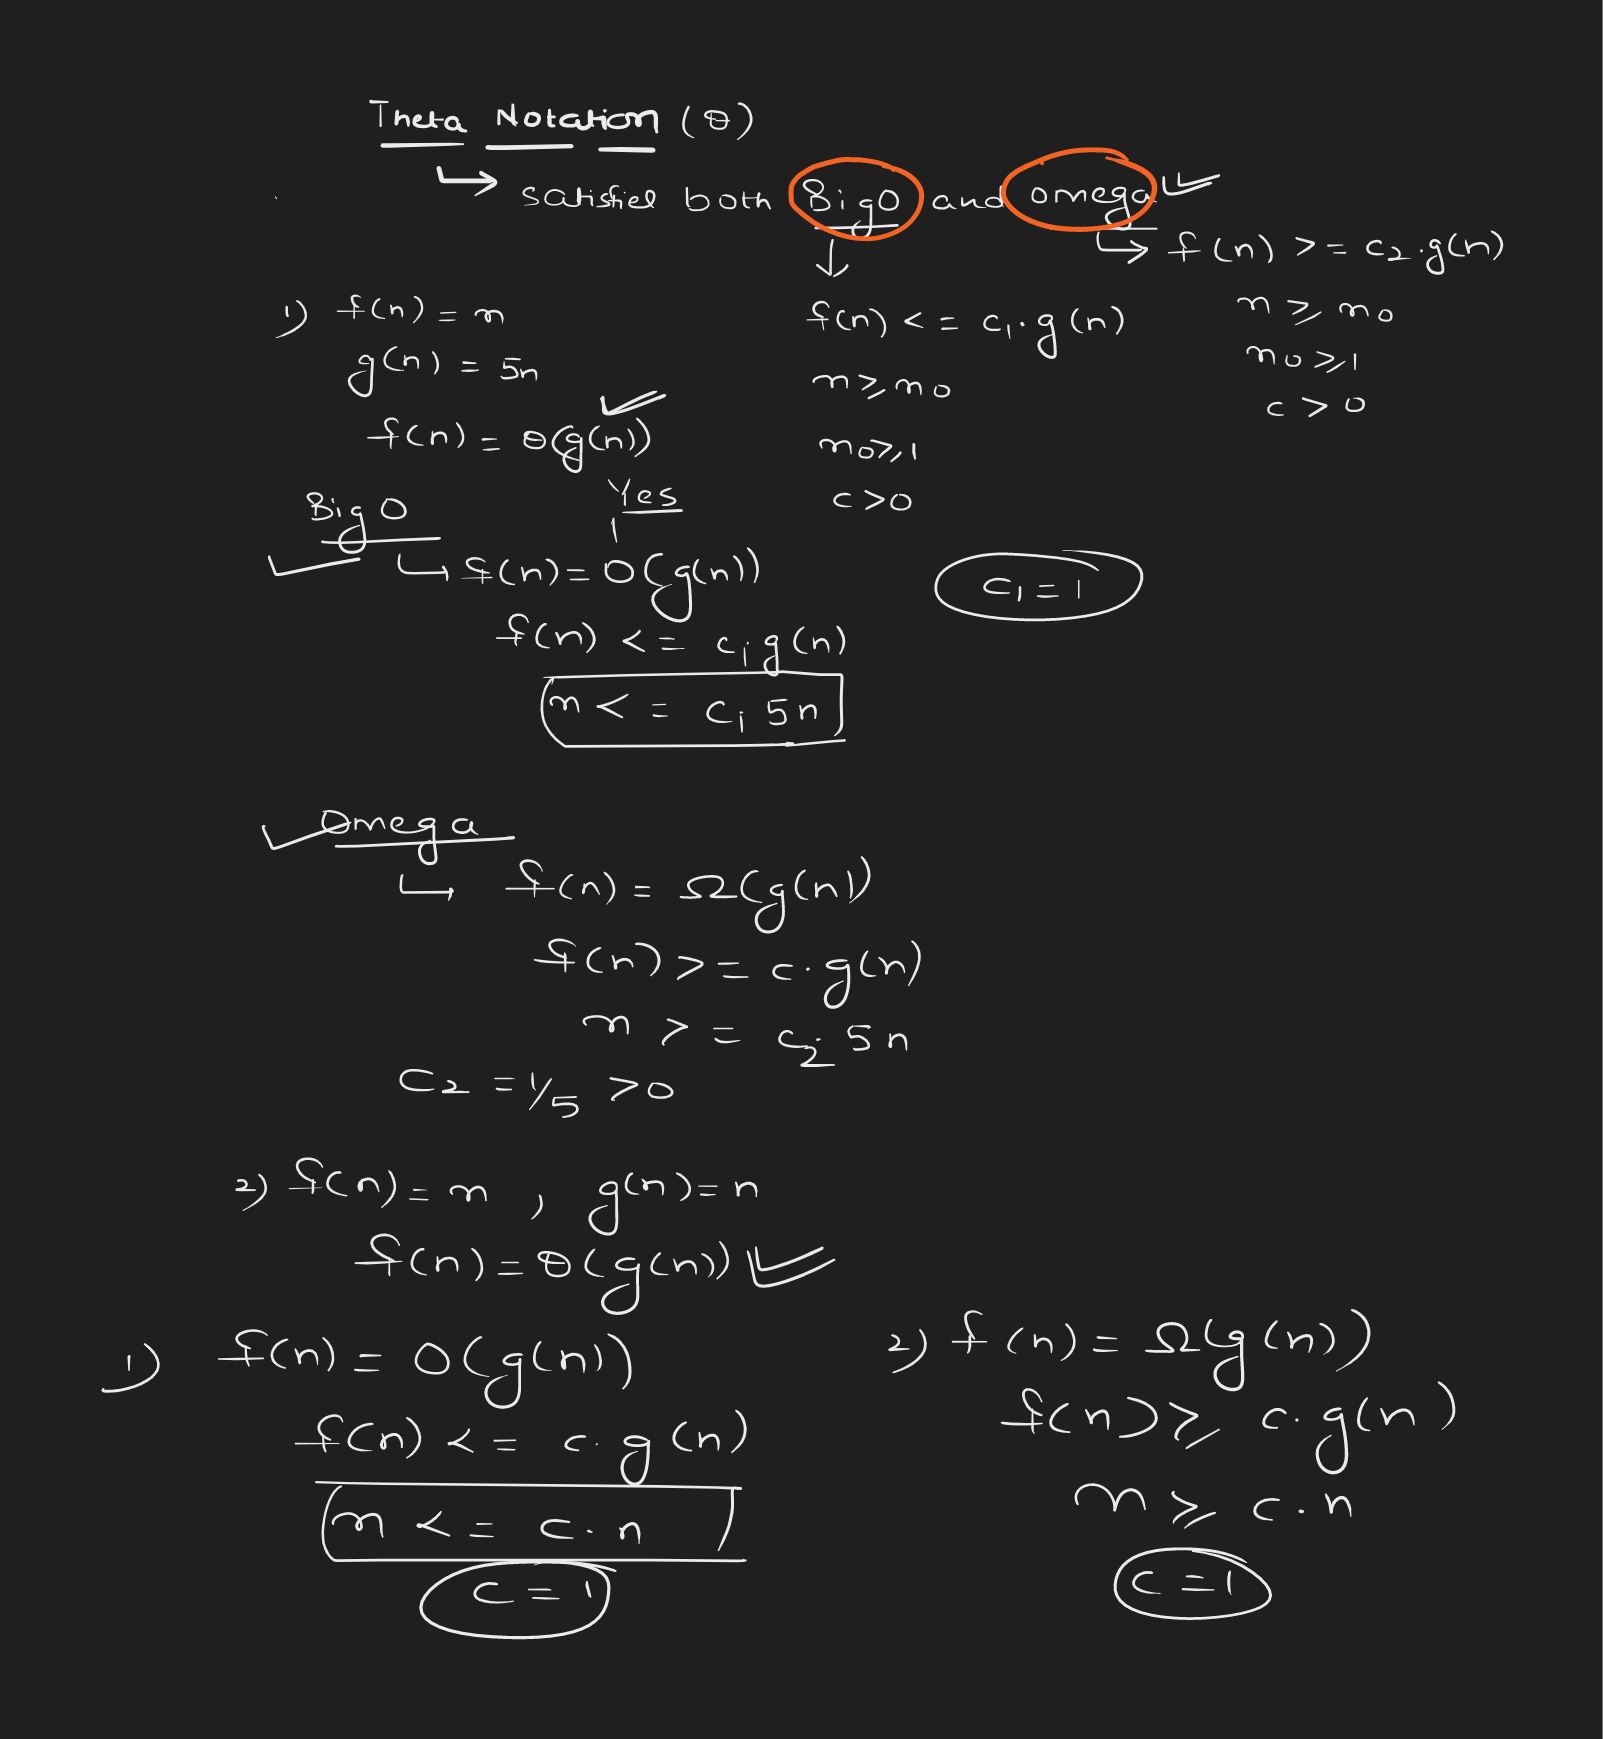 Theta Notation (θ)
↳ satisfies both Big O and omega
↳ f(n) >= c2.g(n)
n ≥ n0
n0 ≥ 1
c > 0
↓
f(n) <= c1.g(n)
n ≥ n0
n0 ≥ 1
c > 0
1) f(n) = n
g(n) = 5n
f(n) = θ(g(n))
Yes
Big O
↳ f(n) = O(g(n))
f(n) <= c1 g(n)
n <= c1 5n
c1 = 1
Omega
↳ f(n) = Ω(g(n))
f(n) >= c.g(n)
n >= c2 5n
c2 = 1/5 > 0
2) f(n) = n , g(n) = n
f(n) = θ(g(n))
1) f(n) = O(g(n))
f(n) <= c.g(n)
n <= c.n
c = 1
2) f(n) = Ω(g(n))
f(n) ≥ c.g(n)
n ≥ c.n
c = 1